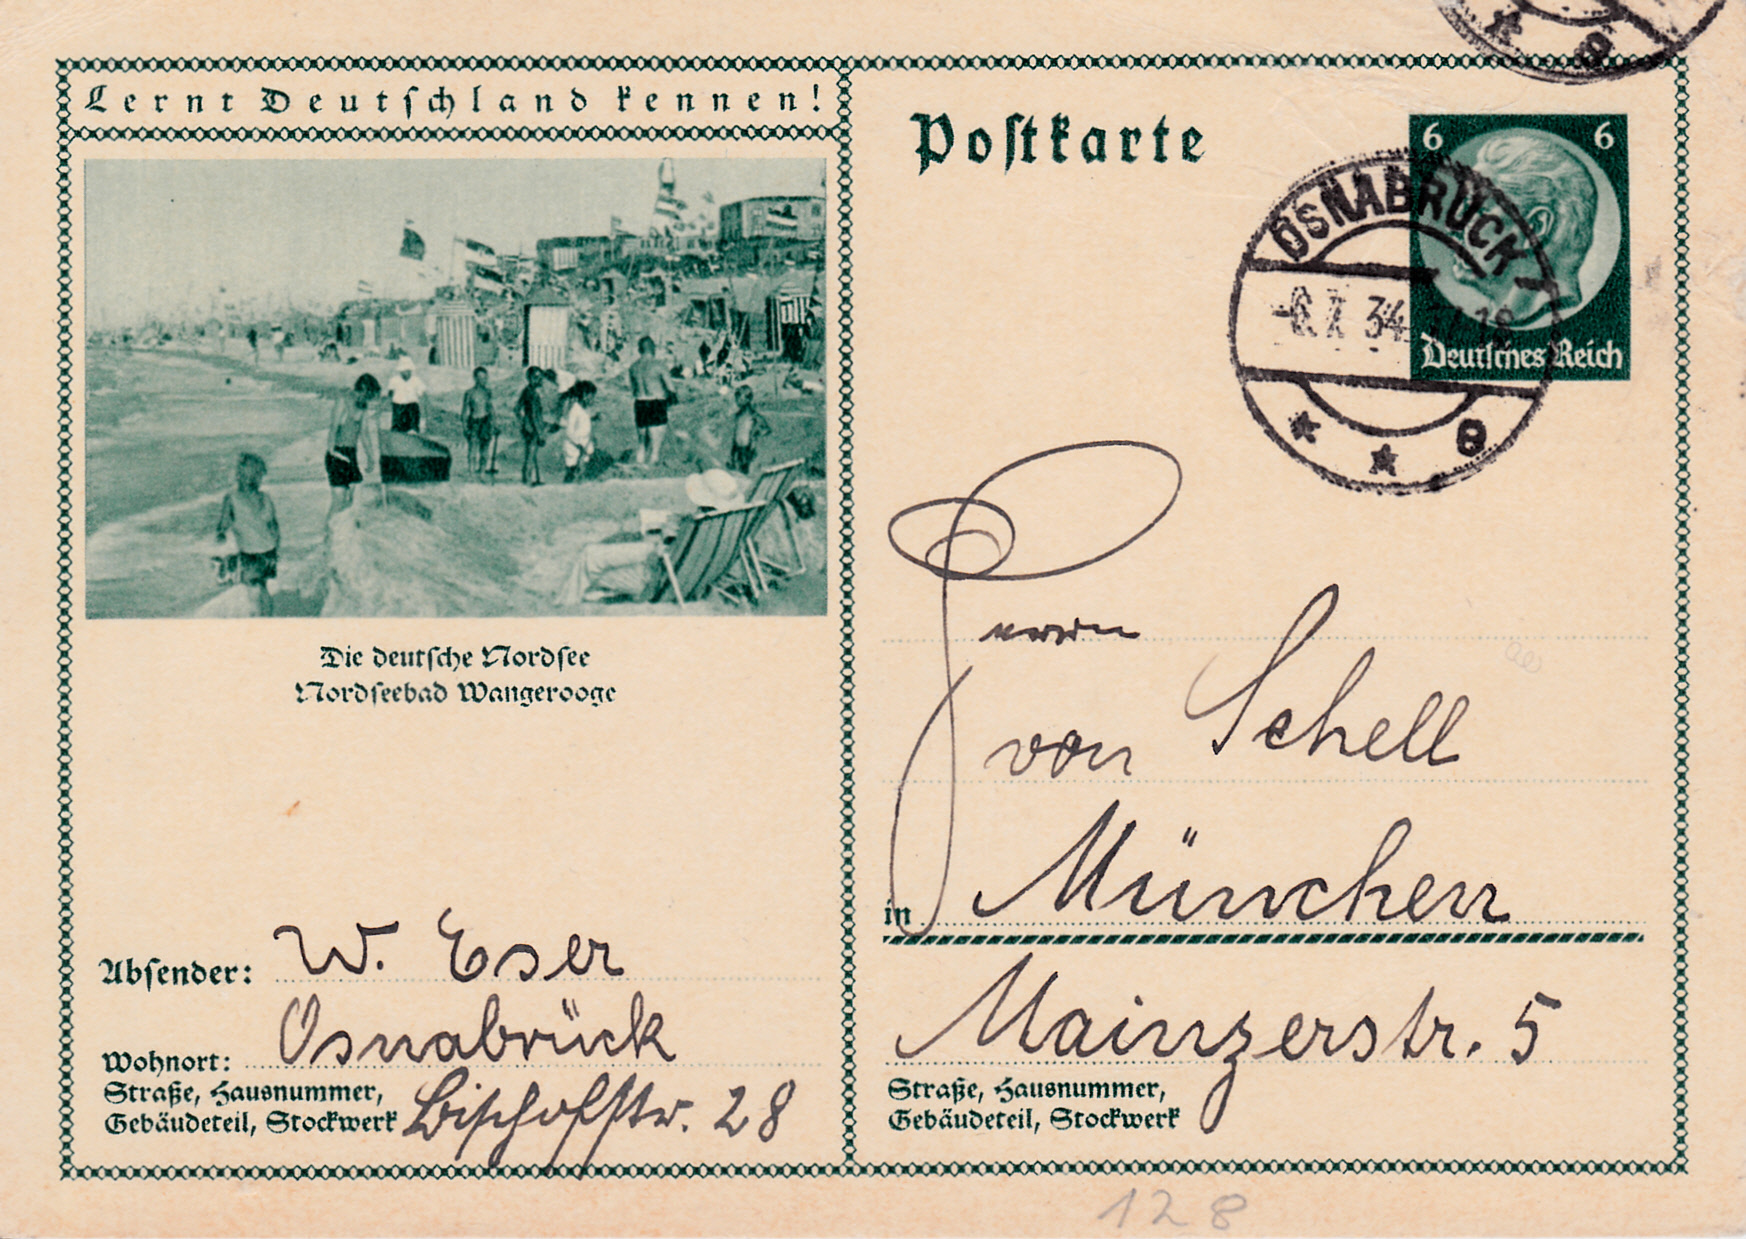 Lernt Deutschland kennen!
Die deutsche Nordsee
Nordseebad Wangerooge
Absender: W. Eser
Wohnort: Osnabrück
Straße, Hausnummer,
Gebäudeteil, Stockwerk Bischofstr. 28
Postkarte
6 6
Deutsches Reich
OSNABRÜCK 1
34
e
e
Herrn
von Schell
in München
Mainzerstr. 5
Straße, Hausnummer,
Gebäudeteil, Stockwerk
128